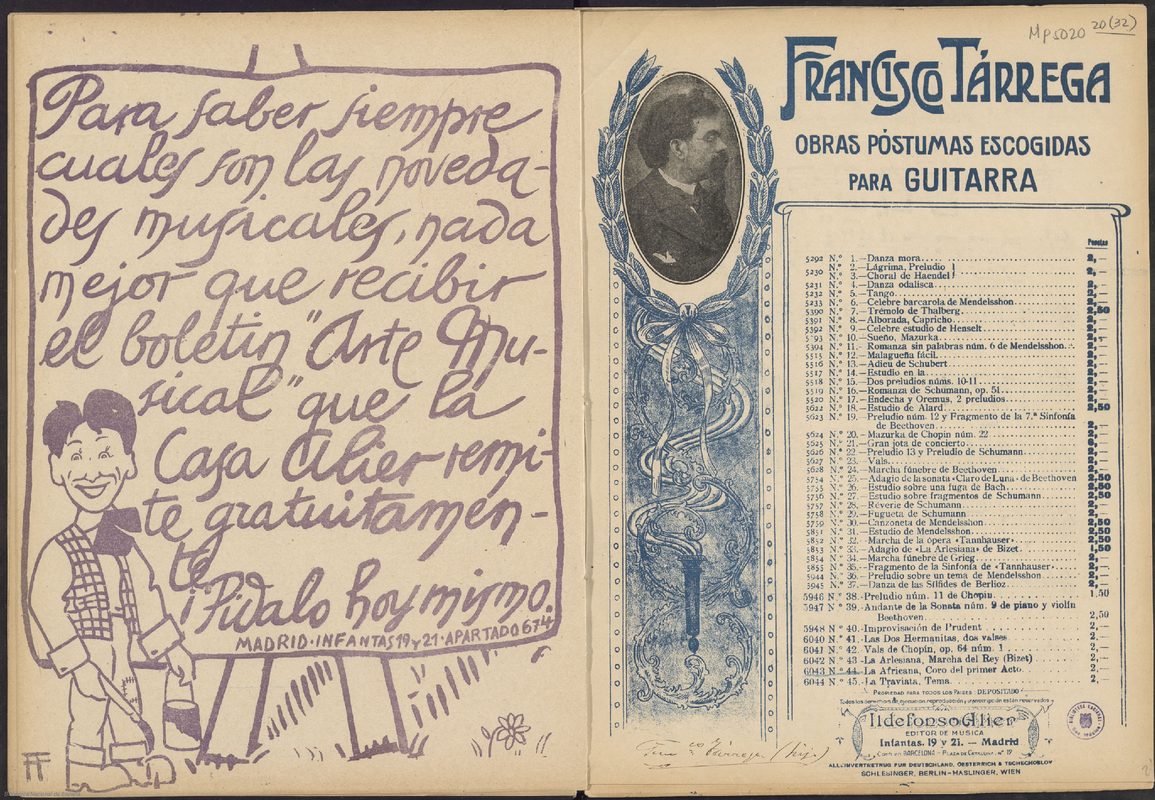 Para saber siempre
cuales son las noveda-
des musicales, nada
mejor que recibir
el boletin "Arte Mu-
sical" que la
Casa Alier remi-
te gratuitamen-
te
¡Pídalo hoy mismo.
MADRID·INFANTAS 19 y 21·APARTADO 674
Mp5020 20(32)
FRANCISCO TÁRREGA
OBRAS PÓSTUMAS ESCOGIDAS
PARA GUITARRA
Pesetas
5292 N.º 1.—Danza mora 2,—
5230 N.º 2.—Lágrima, Preludio
N.º 3.—Choral de Haendel 2,—
5231 N.º 4.—Danza odalisca 2,—
5232 N.º 5.—Tango 2,—
5233 N.º 6.—Célebre barcarola de Mendelsshon 2,—
5390 N.º 7.—Trémolo de Thalberg 2,50
5391 N.º 8.—Alborada, Capricho 2,—
5392 N.º 9.—Célebre estudio de Henselt 2,—
5393 N.º 10.—Sueño, Mazurka 2,—
5394 N.º 11.—Romanza sin palabras núm. 6 de Mendelsshon 2,—
5515 N.º 12.—Malagueña fácil 2,—
5516 N.º 13.—Adieu de Schubert 2,—
5517 N.º 14.—Estudio en la 2,—
5518 N.º 15.—Dos preludios núms. 10-11 2,—
5519 N.º 16.—Romanza de Schumann, op. 51 2,—
5520 N.º 17.—Endecha y Oremus, 2 preludios 2,—
5622 N.º 18.—Estudio de Alard 2,50
5623 N.º 19.—Preludio núm. 12 y Fragmento de la 7.ª Sinfonía
de Beethoven 2,—
5624 N.º 20.—Mazurka de Chopin núm. 22 2,—
5625 N.º 21.—Gran jota de concierto
5626 N.º 22.—Preludio 13 y Preludio de Schumann 2,—
5627 N.º 23.—Vals 2,—
5628 N.º 24.—Marcha fúnebre de Beethoven 2,—
5754 N.º 25.—Adagio de la sonata «Claro de Luna» de Beethoven 2,50
5755 N.º 26.—Estudio sobre una fuga de Bach 2,50
5756 N.º 27.—Estudio sobre fragmentos de Schumann 2,50
5757 N.º 28.—Rêverie de Schumann 2,—
5758 N.º 29.—Fugueta de Schumann 2,—
5759 N.º 30.—Canzoneta de Mendelsshon 2,50
5851 N.º 31.—Estudio de Mendelsshon 2,50
5852 N.º 32.—Marcha de la ópera «Tannhauser» 2,50
5853 N.º 33.—Adagio de «La Arlesiana» de Bizet 1,50
5854 N.º 34.—Marcha fúnebre de Grieg 2,—
5855 N.º 35.—Fragmento de la Sinfonía de «Tannhauser» 2,—
5944 N.º 36.—Preludio sobre un tema de Mendelsshon 2,—
5945 N.º 37.—Danza de las Sílfides de Berlioz 2,—
5946 N.º 38.—Preludio núm. 11 de Chopin 1,50
5947 N.º 39.—Andante de la Sonata núm. 9 de piano y violín
Beethoven 2,50
5948 N.º 40.—Improvisación de Prudent 2,—
6040 N.º 41.—Las Dos Hermanitas, dos valses 2,—
6041 N.º 42.—Vals de Chopín, op. 64 núm. 1 2,—
6042 N.º 43.—La Arlesiana, Marcha del Rey (Bizet) 2,—
6043 N.º 44.—La Africana, Coro del primer Acto 2,—
6044 N.º 45.—La Traviata, Tema 2,—
PROPIEDAD PARA TODOS LOS PAISES · DEPOSITADO
Todos los derechos de ejecucion, reproducción y transcripción están reservados
Ildefonso Alier
EDITOR DE MUSICA
Infantas, 19 y 21. — Madrid
BARCELONA - PLAZA DE CATALUÑA, Nº 17
BIBLIOTECA NACIONAL
ALLEINVERTRETUG FÜR DEUTSCHLAND, OESTERRICH & TSCHECHOSLOV
SCHLESINGER, BERLIN-MASLINGER, WIEN